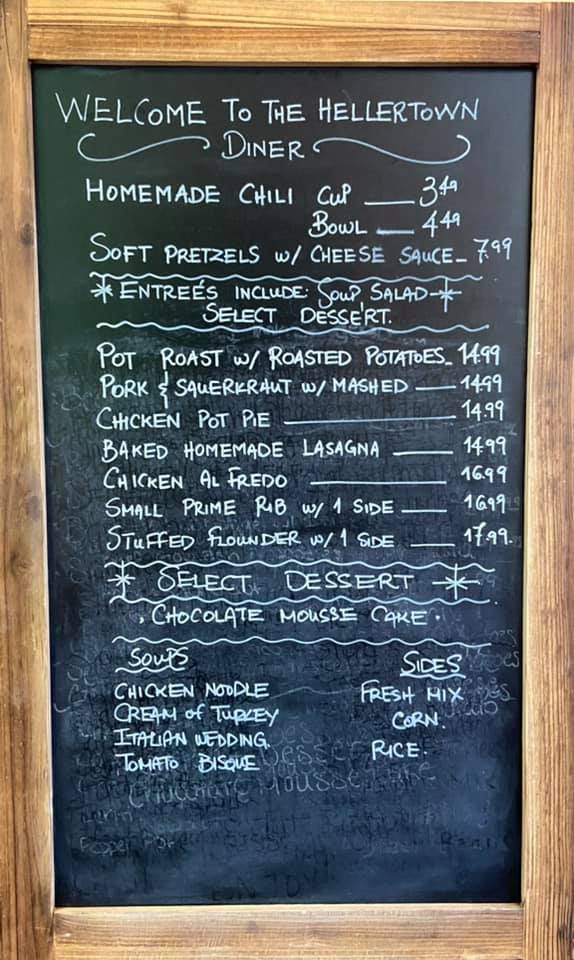 WELCOME TO THE HELLERTOWN
DINER
HOMEMADE CHILI CUP — 3.49
BOWL — 4.49
SOFT PRETZELS W/ CHEESE SAUCE - 7.99
* ENTREÉS INCLUDE: SOUP, SALAD *
SELECT DESSERT.
POT ROAST W/ ROASTED POTATOES - 14.99
PORK & SAUERKRAUT W/ MASHED — 14.99
CHICKEN POT PIE — 14.99
BAKED HOMEMADE LASAGNA — 14.99
CHICKEN AL FREDO — 16.99
SMALL PRIME RIB W/ 1 SIDE — 16.99
STUFFED FLOUNDER W/ 1 SIDE — 17.99.
* SELECT DESSERT *
· CHOCOLATE MOUSSE CAKE ·
SOUPS
CHICKEN NOODLE
CREAM of TURKEY
ITALIAN WEDDING.
TOMATO BISQUE
SIDES
FRESH MIX
CORN.
RICE.